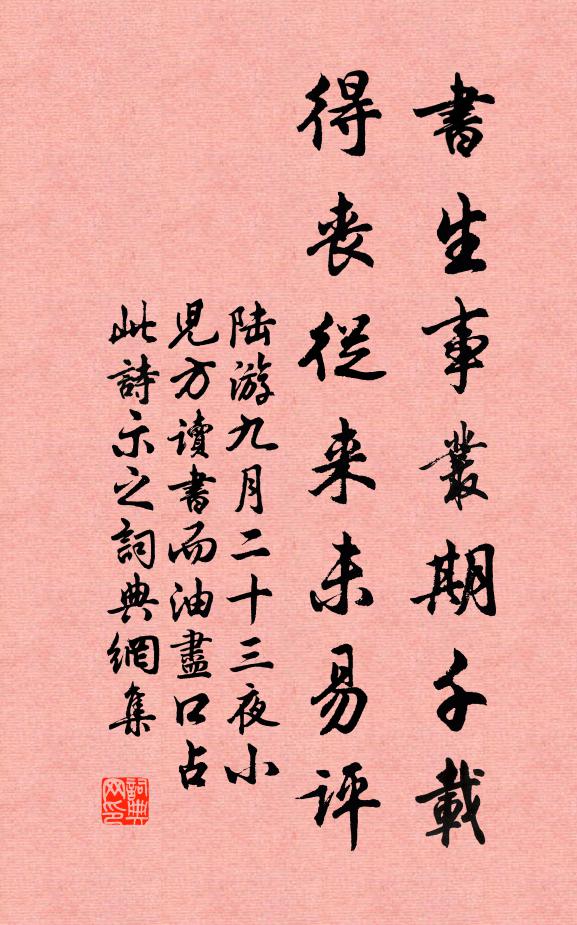 書生事業期千載
得喪從来未易評
陆游九月二十三夜小
児方讀書而油盡口占
此詩示之詞典網集
詞典网印